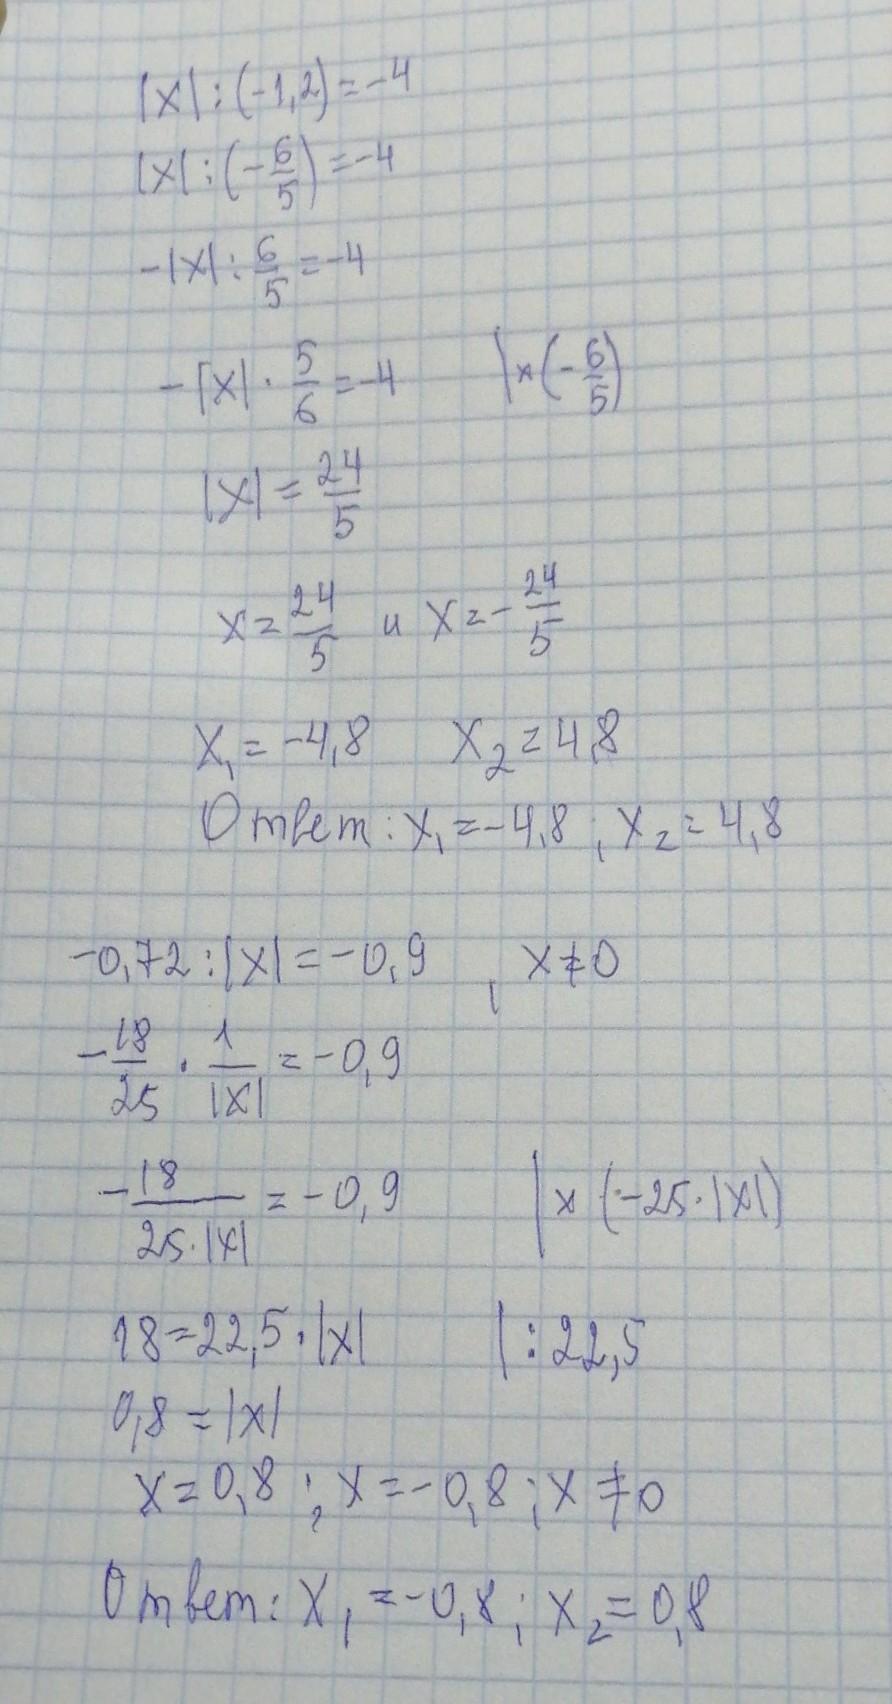 |x| : (-1,2) = -4
|x| : (-6/5) = -4
-|x| : 6/5 = -4
-|x| · 5/6 = -4 | × (-6/5)
|x| = 24/5
x = 24/5 и x = -24/5
x₁ = -4,8 x₂ = 4,8
Ответ: x₁ = -4,8 ; x₂ = 4,8
-0,72 : |x| = -0,9 , x ≠ 0
-18/25 · 1/|x| = -0,9
-18/(25·|x|) = -0,9 | × (-25·|x|)
18 = 22,5 · |x| | : 22,5
0,8 = |x|
x = 0,8 ; x = -0,8 ; x ≠ 0
Ответ: x₁ = -0,8 ; x₂ = 0,8